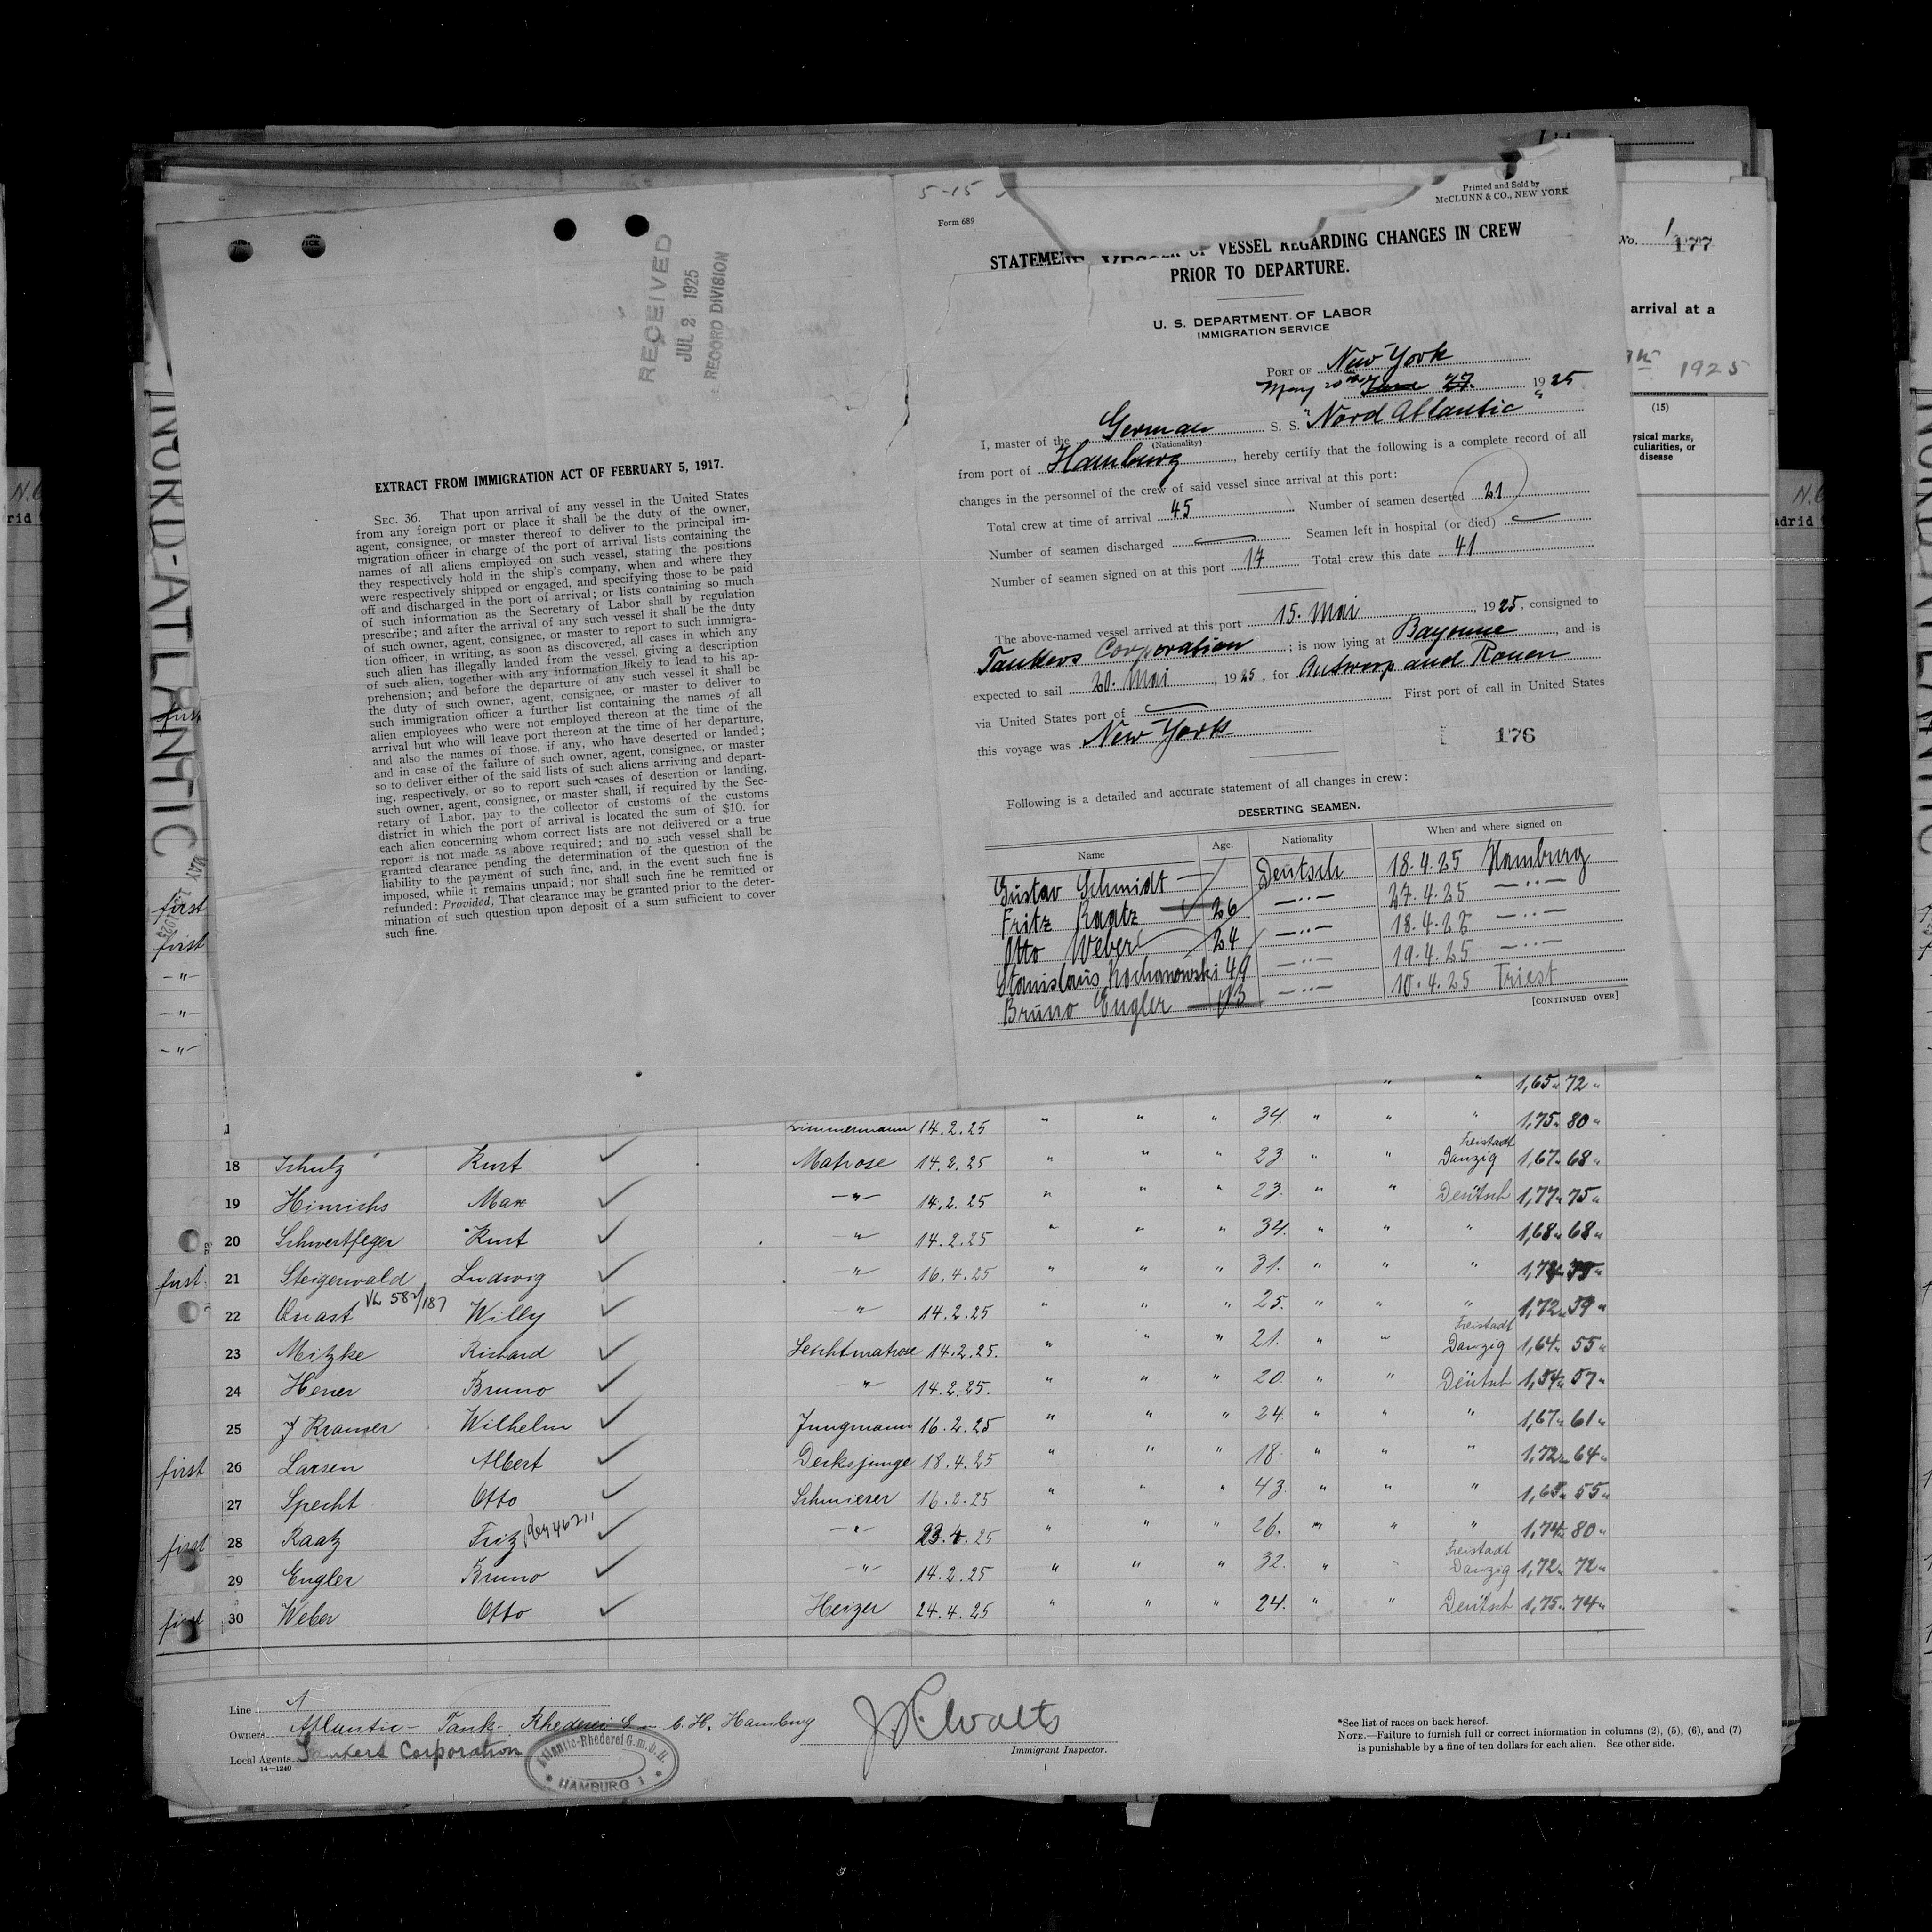 RECEIVED
JUL 2 1925
RECORD DIVISION
EXTRACT FROM IMMIGRATION ACT OF FEBRUARY 5, 1917.
SEC. 36. That upon arrival of any vessel in the United States
from any foreign port or place it shall be the duty of the owner,
agent, consignee, or master thereof to deliver to the principal im-
migration officer in charge of the port of arrival lists containing the
names of all aliens employed on such vessel, stating the positions
they respectively hold in the ship's company, when and where they
were respectively shipped or engaged, and specifying those to be paid
off and discharged in the port of arrival; or lists containing so much
of such information as the Secretary of Labor shall by regulation
prescribe; and after the arrival of any such vessel it shall be the duty
of such owner, agent, consignee, or master to report to such immigra-
tion officer, in writing, as soon as discovered, all cases in which any
such alien has illegally landed from the vessel, giving a description
of such alien, together with any information likely to lead to his ap-
prehension; and before the departure of any such vessel it shall be
the duty of such owner, agent, consignee, or master to deliver to
such immigration officer a further list containing the names of all
alien employees who were not employed thereon at the time of the
arrival but who will leave port thereon at the time of her departure,
and also the names of those, if any, who have deserted or landed;
and in case of the failure of such owner, agent, consignee, or master
so to deliver either of the said lists of such aliens arriving and depart-
ing, respectively, or so to report such cases of desertion or landing,
such owner, agent, consignee, or master shall, if required by the Sec-
retary of Labor, pay to the collector of customs of the customs
district in which the port of arrival is located the sum of $10. for
each alien concerning whom correct lists are not delivered or a true
report is not made as above required; and no such vessel shall be
granted clearance pending the determination of the question of the
liability to the payment of such fine, and, in the event such fine is
imposed, while it remains unpaid; nor shall such fine be remitted or
refunded: Provided, That clearance may be granted prior to the deter-
mination of such question upon deposit of a sum sufficient to cover
such fine.
5-15
Form 689
Printed and Sold by
McCLUNN & CO., NEW YORK
VESSEL REGARDING CHANGES IN CREW
PRIOR TO DEPARTURE.
U. S. DEPARTMENT OF LABOR
IMMIGRATION SERVICE
PORT OF New York
May 20th June 27. 1925
I, master of the German S. S. "Nord Atlantic"
(Nationality)
from port of Hamburg, hereby certify that the following is a complete record of all
changes in the personnel of the crew of said vessel since arrival at this port:
Total crew at time of arrival 45 Number of seamen deserted 21
Number of seamen discharged — Seamen left in hospital (or died) —
Number of seamen signed on at this port 17 Total crew this date 41
The above-named vessel arrived at this port 15. Mai, 1925, consigned to
Tankers Corporation; is now lying at Bayonne, and is
expected to sail 20. Mai, 1925, for Antwerp and Rouen
via United States port of — First port of call in United States
this voyage was New York
176
Following is a detailed and accurate statement of all changes in crew:
DESERTING SEAMEN.
Name Age. Nationality When and where signed on
Gustav Schmidt — Deutsch 18.4.25 Hamburg
Fritz Raatz 26 —"— 27.4.25 —"—
Otto Weber 24 —"— 18.4.25 —"—
Stanislaus Kochanowski 49 —"— 19.4.25 —"—
Bruno Engler —"— 10.4.25 Triest
[CONTINUED OVER]
No. 1
177
arrival at a
1925
(15)
ysical marks,
culiarities, or
disease
NORD-ATLANTIC
first
first
—"—
—"—
—"—
" " 1,65" 72"
Zimmermann 14.2.25 " " " 34. " " " 1,75" 80"
18 Schulz Kurt ✓ Matrose 14.2.25 " " " 23. " " Freistadt Danzig 1,67" 68"
19 Hinrichs Max ✓ —"— 14.2.25 " " " 23. " " Deutsch 1,77" 75"
20 Schwertfeger Kurt ✓ —"— 14.2.25 " " " 34. " " " 1,68" 68"
first 21 Steigerwald Ludwig ✓ —"— 16.4.25 " " " 31. " " "
22 Quast VL 582/187 Willy ✓ —"— 14.2.25 " " " 25. " " " 1,72" 59"
23 Mitzke Richard ✓ Leichtmatrose 14.2.25. " " " 21. " " Freistadt Danzig 1,64" 55"
24 Hener Bruno ✓ —"— 14.2.25. " " " 20. " " Deutsch 1,54" 57"
25 Kramer Wilhelm ✓ Jungmann 16.2.25 " " " 24. " " " 1,67" 61"
first 26 Larsen Albert ✓ Decksjunge 18.4.25 " " " 18. " " " 1,72" 64"
27 Specht Otto ✓ Schmierer 16.2.25 " " " 43. " " " 1,63" 55"
first 28 Raatz Fritz ✓ —"— 23.4.25 " " " 26. " " " 1,74" 80"
29 Engler Bruno ✓ —"— 14.2.25 " " " 32. " " Freistadt Danzig 1,72" 72"
first 30 Weber Otto ✓ Heizer 24.4.25 " " " 24. " " Deutsch 1,75" 74"
Line
Owners Atlantic-Tank-Rhederei G.m.b.H. Hamburg
Local Agents Tankers Corporation
14—1240
Atlantic-Rhederei G.m.b.H.
HAMBURG 1
Immigrant Inspector.
*See list of races on back hereof.
NOTE.—Failure to furnish full or correct information in columns (2), (5), (6), and (7)
is punishable by a fine of ten dollars for each alien. See other side.